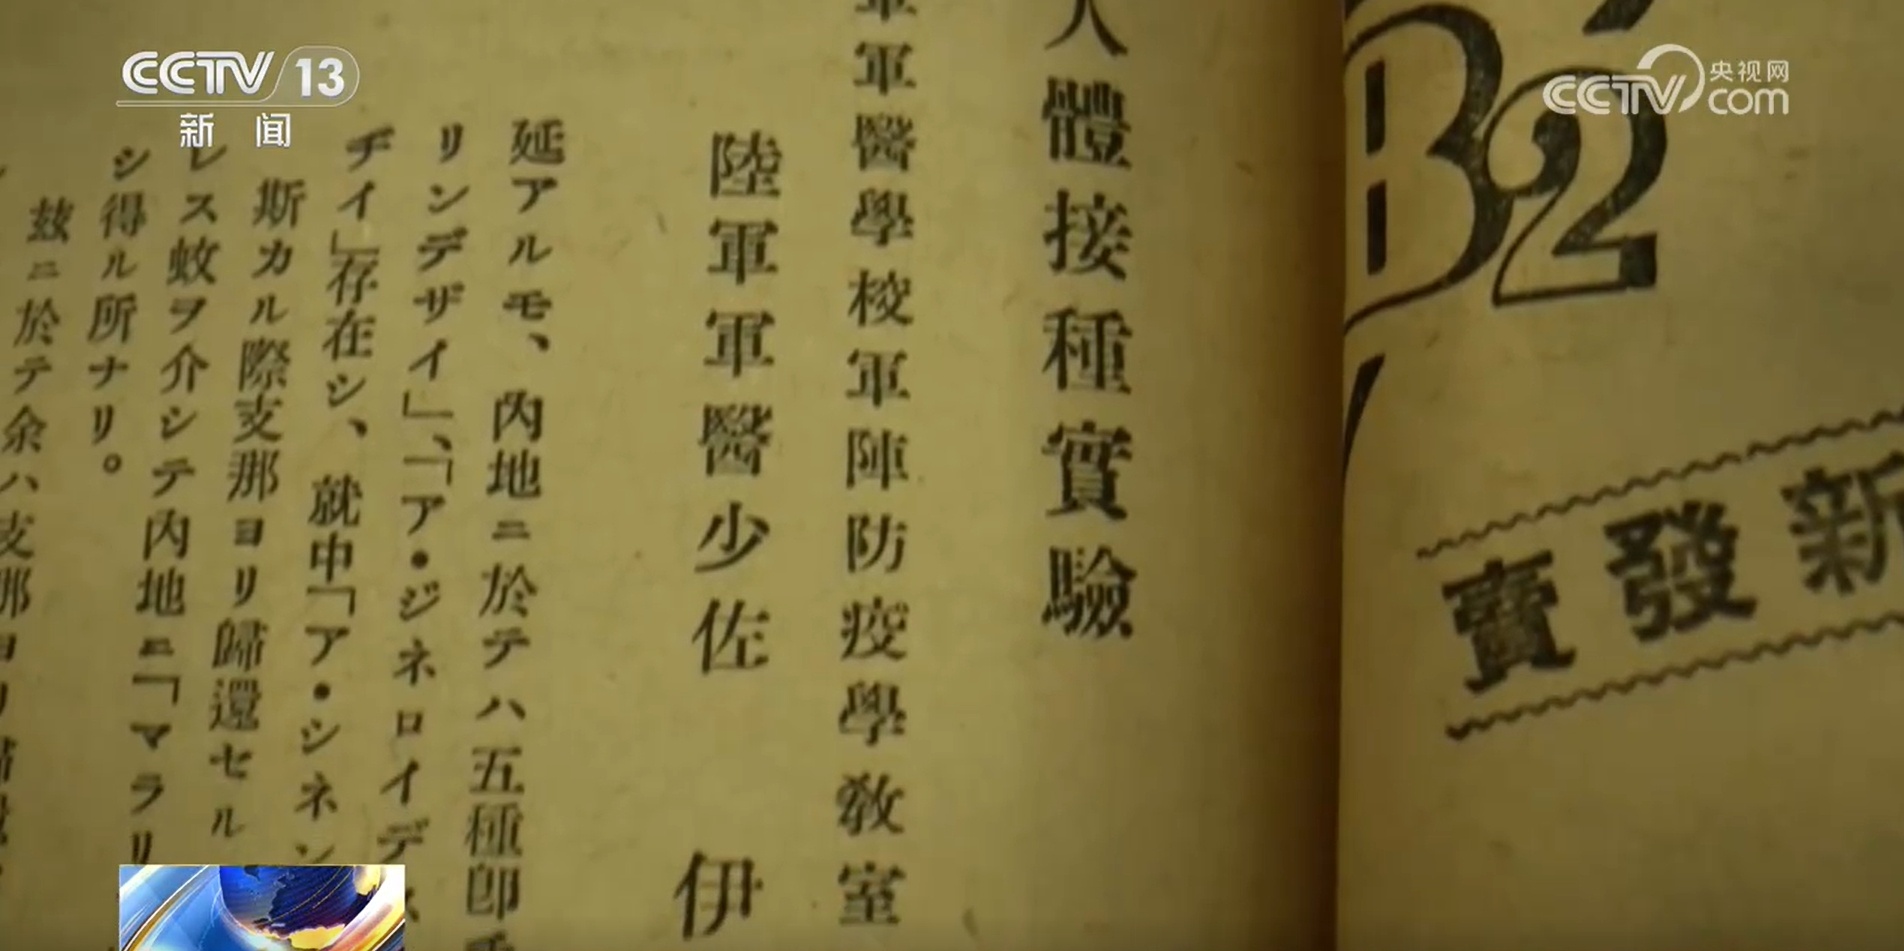 CCTV 13
新闻
央视网
CCTV com
B2
新發賣
人體接種實驗
軍軍醫學校軍陣防疫學教室
陸軍軍醫少佐 伊
延アルモ、內地ニ於テハ五種卽
リンデザイ」、「ア・ジネロイデス
ヂイ」存在シ、就中「ア・シネン
斯カル際支那ヨリ歸還セル
レス蚊ヲ介シテ內地ニ「マラリ
シ得ル所ナリ。
茲ニ於テ余ハ支那ヨリ歸